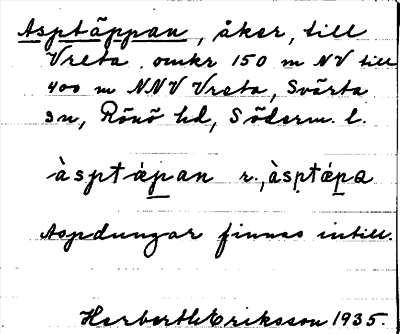 Asptäppan, åker, till
Vreta omkr 150 m NV till
400 m NNV Vreta, Svärta
sn, Rönö hd, Söderm. l.
àsptæ̀pan r., àsptæ̀pa
Aspdungar finnas intill.
Herbert Eriksson 1935.